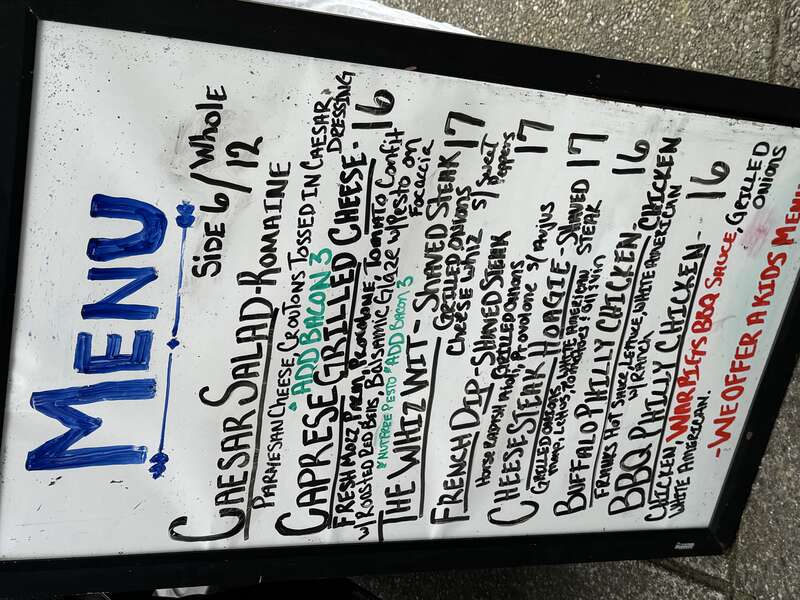 MENU
Side 6/Whole 12
CAESAR SALAD-ROMAINE
PARMESAN CHEESE, CROUTONS TOSSED IN CAESAR DRESSING
*ADD BACON 3
CAPRESE GRILLED CHEESE- 16
FRESH MOZZ, PARM, PROVOLONE, TOMATO CONFIT
W/ROASTED RED BELLS, BALSAMIC GLAZE W/PESTO ON FOCACCIA
*NUTFREE PESTO *ADD BACON 3
THE WHIZ WIT - SHAVED STEAK 17
GRILLED ONIONS
CHEESE WHIZ S/ Sweet Peppers
FRENCH DIP-SHAVED STEAK 17
HORSE RADISH AIOLI, GRILLED ONIONS, Provolone S/ Aujus
CHEESE STEAK HOAGIE-SHAVED STEAK 17
GRILLED ONIONS, WHITE AMERICAN
MAYO, LETTUCE, TOMATOES
BUFFALO PHILLY CHICKEN- CHICKEN 16
FRANKS HOT SAUCE, LETTUCE, WHITE AMERICAN
W/RANCH
BBQ PHILLY CHICKEN- 16
CHICKEN WARPIGS BBQ SAUCE, GRILLED ONIONS
WHITE AMERICAN.
-WE OFFER A KIDS MENU